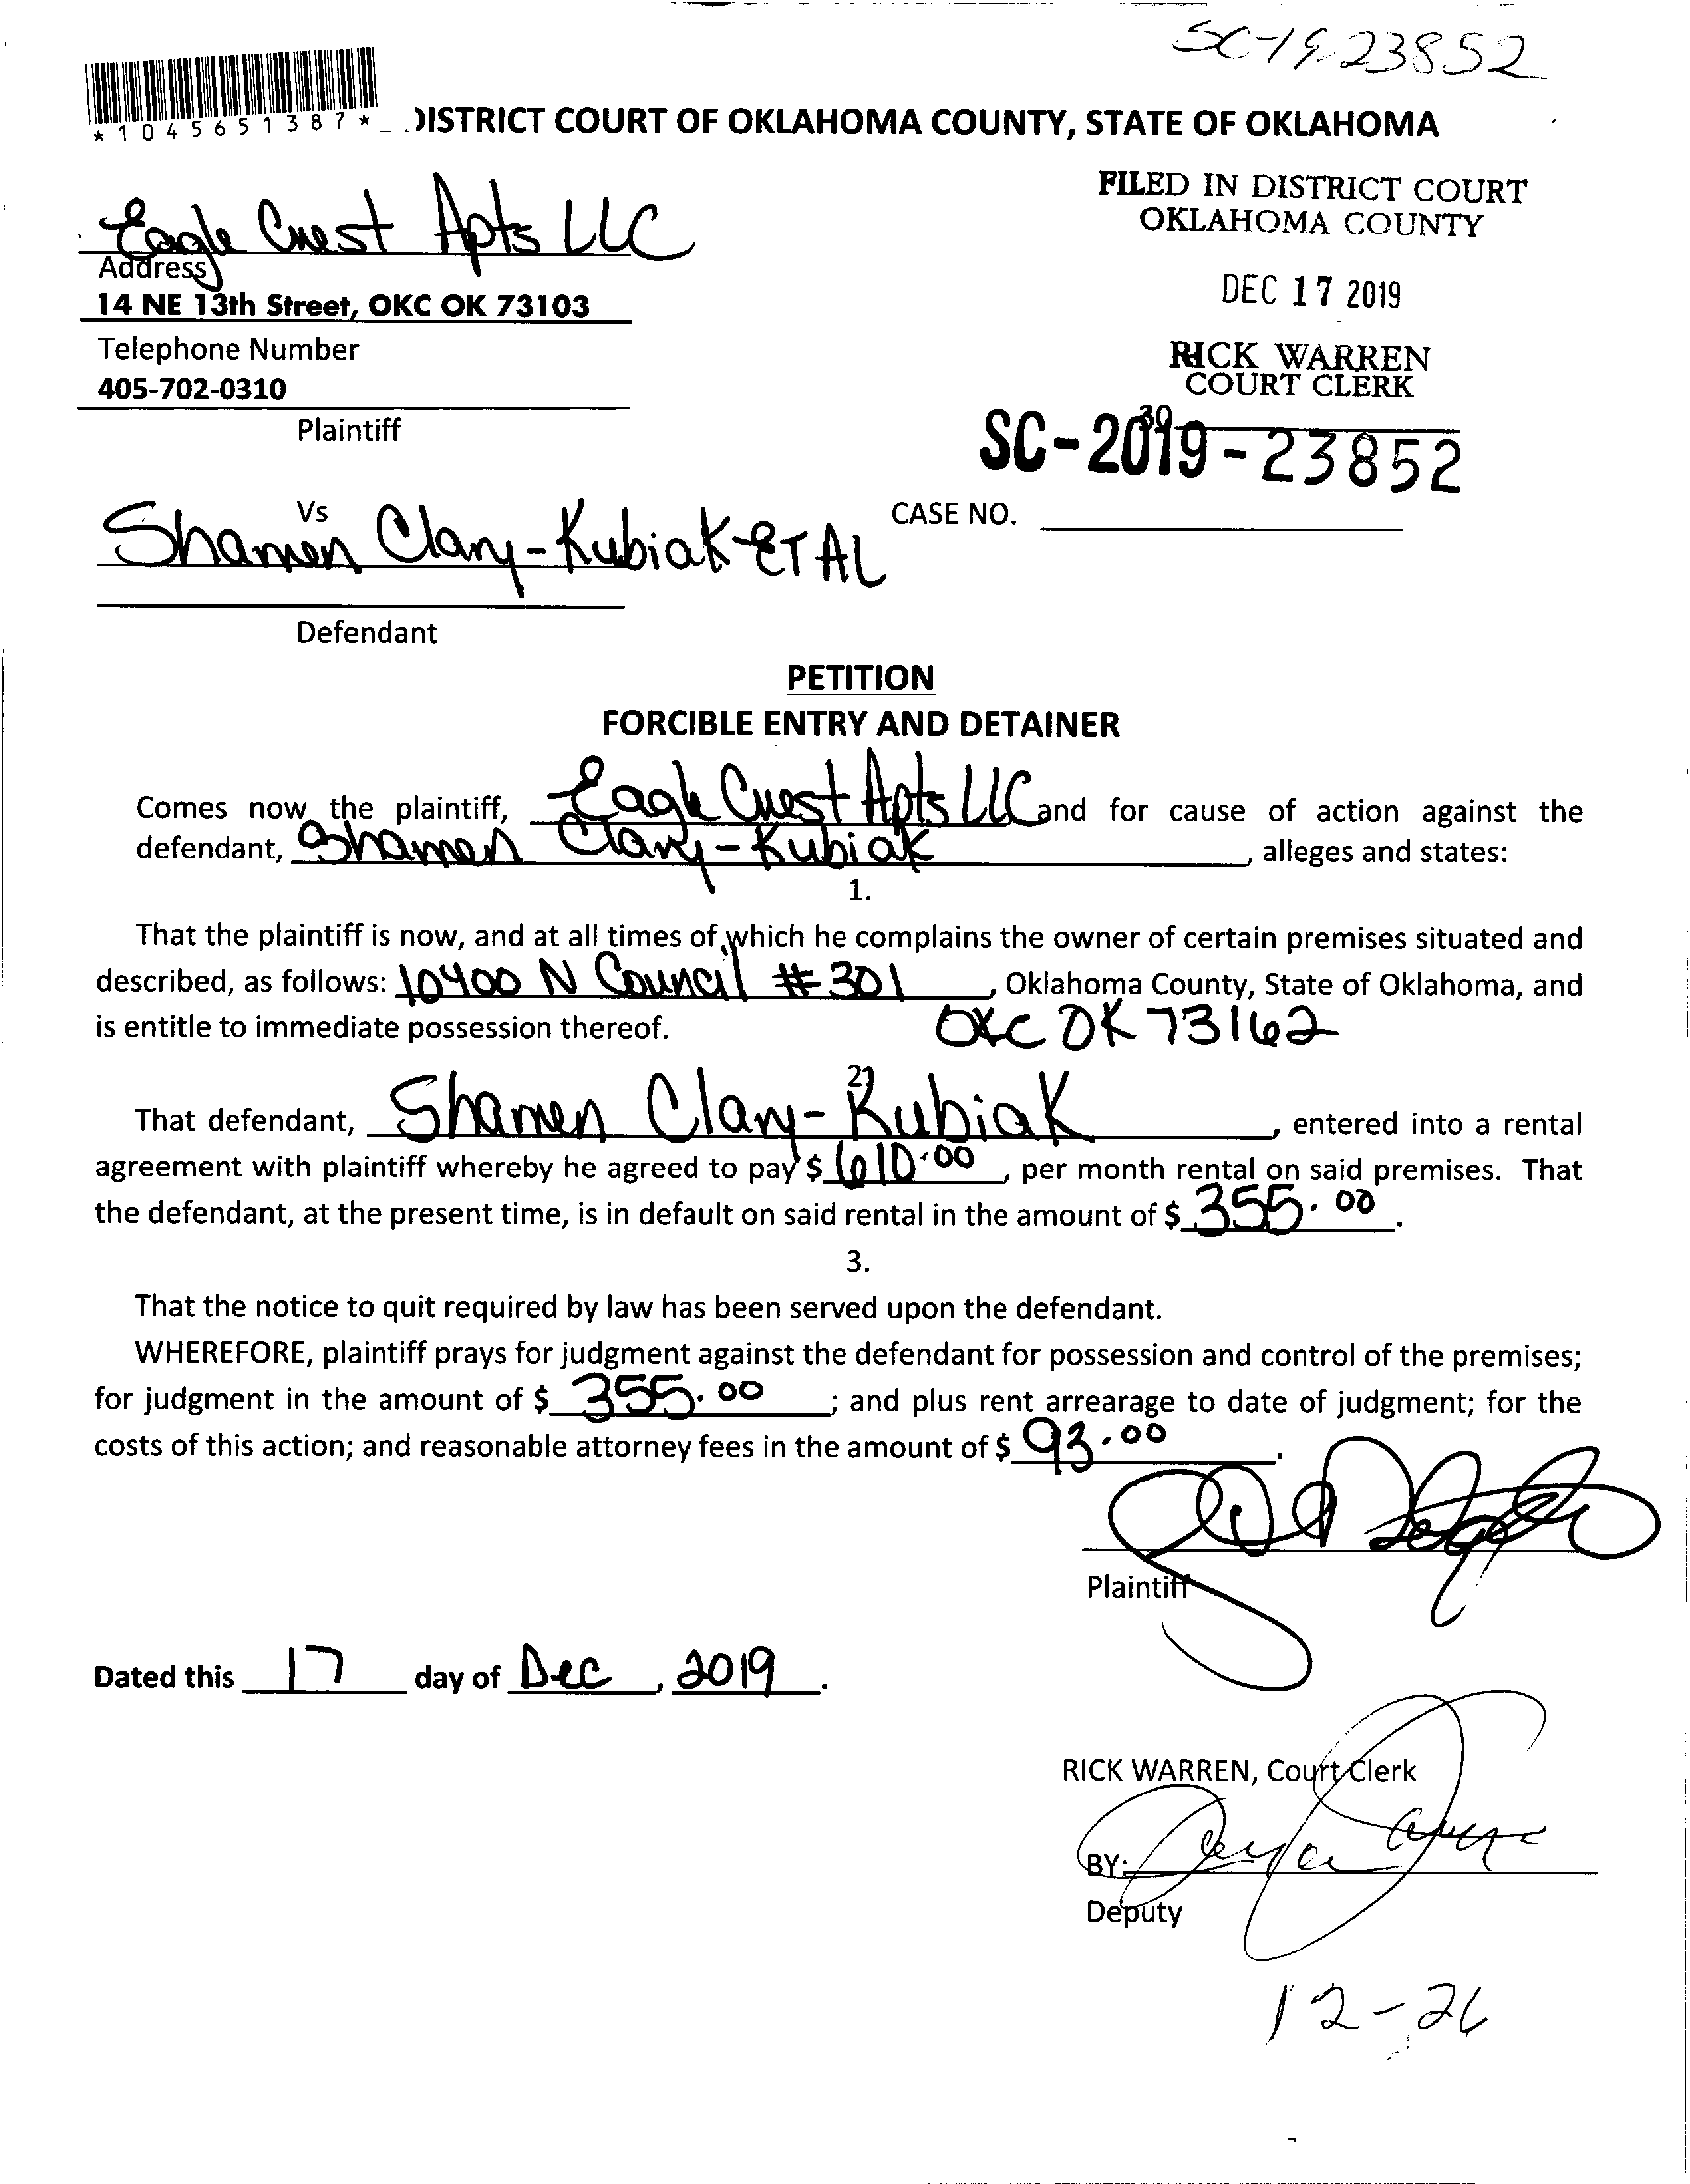 SC-19-23852
*1045651387*
DISTRICT COURT OF OKLAHOMA COUNTY, STATE OF OKLAHOMA
FILED IN DISTRICT COURT
OKLAHOMA COUNTY
Eagle Crest Apts LLC
Address
14 NE 13th Street, OKC OK 73103
DEC 17 2019
Telephone Number
405-702-0310
RICK WARREN
COURT CLERK
Plaintiff
39
SC-2019-23852
Vs
CASE NO.
Shamen Clary-Kubiak ET AL
Defendant
PETITION
FORCIBLE ENTRY AND DETAINER
Comes now the plaintiff, Eagle Crest Apts LLC and for cause of action against the
defendant, Shamen Clary-Kubiak, alleges and states:
1.
That the plaintiff is now, and at all times of which he complains the owner of certain premises situated and
described, as follows: 10400 N Council #301, Oklahoma County, State of Oklahoma, and
is entitle to immediate possession thereof. OKC OK 73162
2.
That defendant, Shamen Clary-Kubiak, entered into a rental
agreement with plaintiff whereby he agreed to pay $ 610.00, per month rental on said premises. That
the defendant, at the present time, is in default on said rental in the amount of $ 355.00.
3.
That the notice to quit required by law has been served upon the defendant.
WHEREFORE, plaintiff prays for judgment against the defendant for possession and control of the premises;
for judgment in the amount of $ 355.00; and plus rent arrearage to date of judgment; for the
costs of this action; and reasonable attorney fees in the amount of $ 93.00.
Plaintiff
Dated this 17 day of Dec, 2019.
RICK WARREN, Court Clerk
BY:
Deputy
12-26